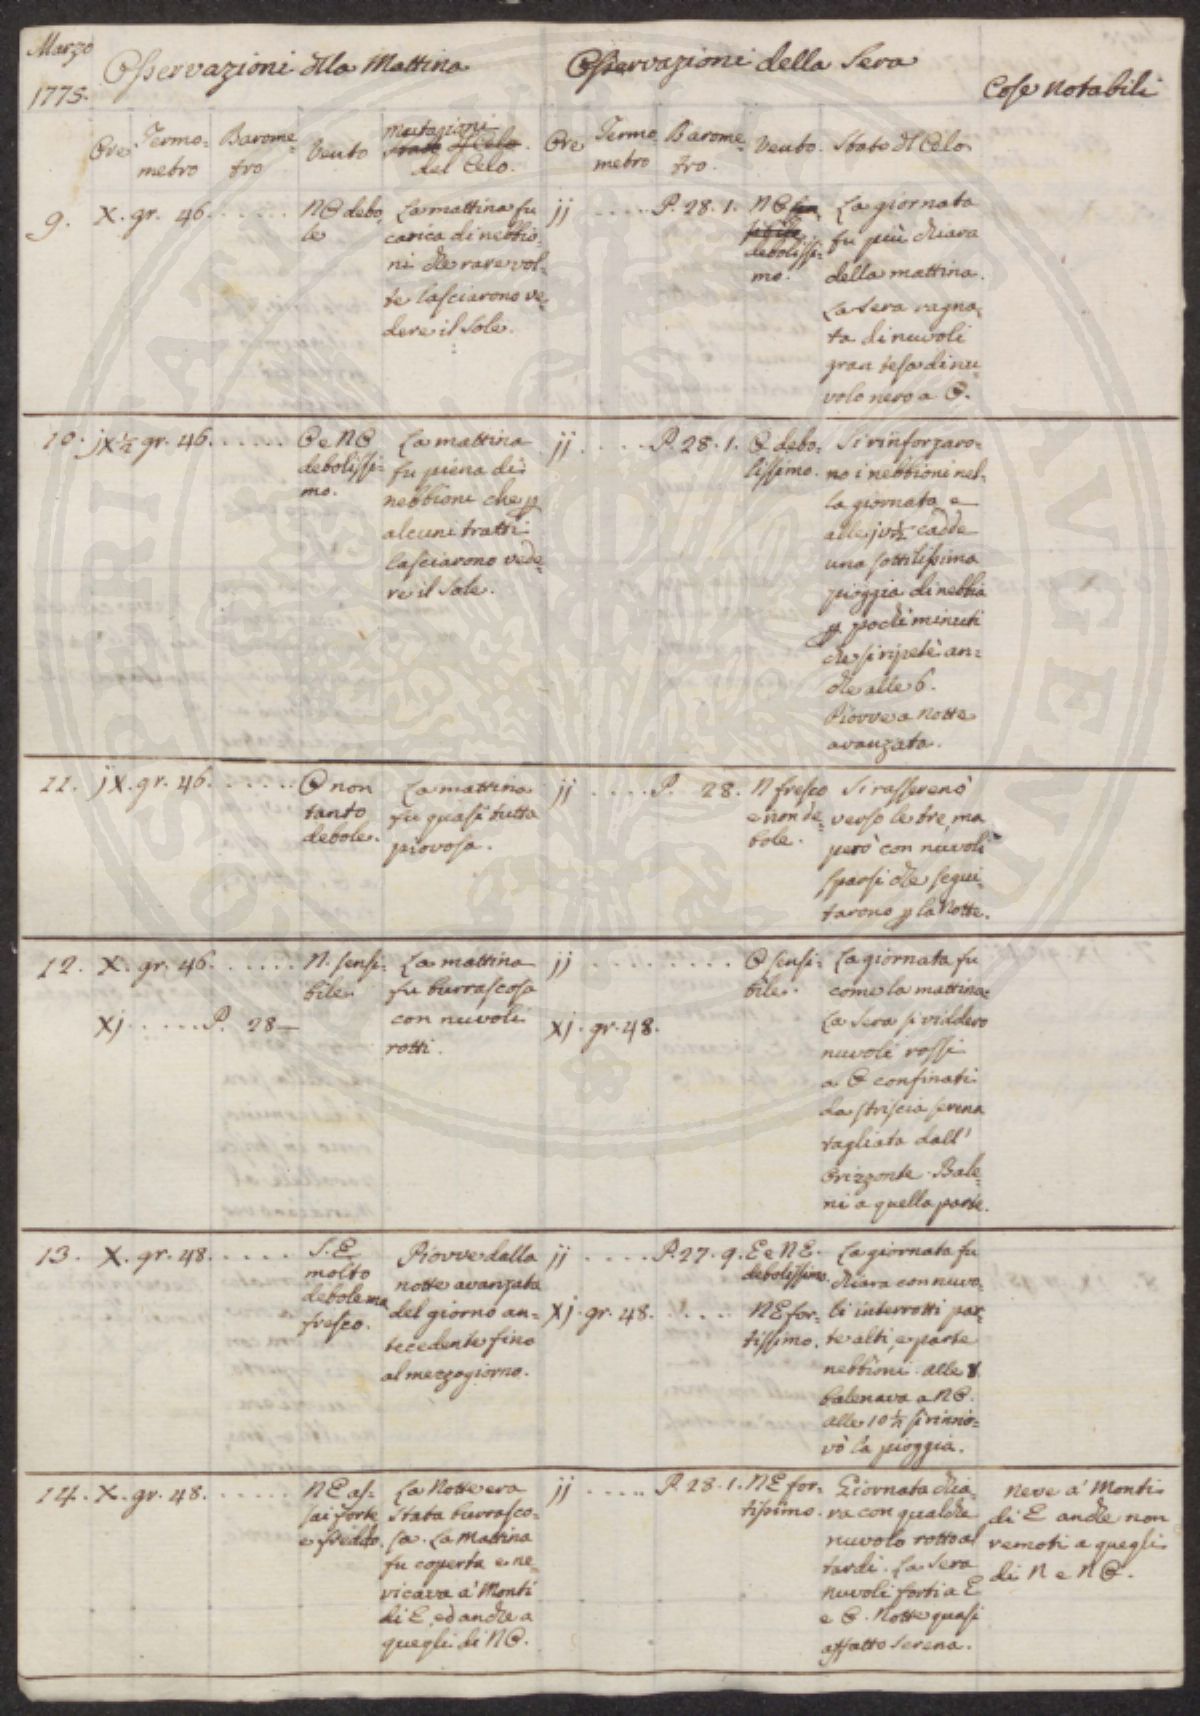 Marzo
1775.
Osservazioni dlla Mattina
Osservazioni della Sera
Cose notabili
Ore
Termo=
metro
Barome=
tro
Vento
mutazioni
Stato dl Celo.
del Celo.
Ore
Termo
metro
Barome=
tro.
Vento.
Stato dl Celo
9. X. gr. 46. . . . . .
NO debo
le
La mattina fu
carica di nebbio=
ni che rare vol=
te lasciarono ve
dere il Sole.
jj . . . . P. 28. 1.
NO
debolissi=
mo.
La giornata
fu più chiara
della mattina.
La Sera ragna=
ta di nuvoli
gran tesa di nu
volo nero a O.
10. jx ½ gr. 46. . . . . .
O e NO
debolissi=
mo.
La mattina
fu piena di
nebbioni che p
alcuni tratti
lasciarono vede=
re il Sole.
jj . . . . P. 28. 1.
O debo=
lissimo.
Si rinforzaro=
no i nebbioni nel=
la giornata e
alle jv½ cadde
una sottilissima
pioggia di nebbia
p pochi minuti
che si ripetè an=
che alle 6.
Piovve a notte
avanzata.
11. jx. gr. 46. . . . . .
O non
tanto
debole.
La mattina
fu quasi tutta
piovosa.
jj . . . . P. 28.
N fresco
e non de=
bole.
Si rasserenò
verso le tre, ma
però con nuvoli
sparsi che segui=
tarono p la Notte.
12. X. gr. 46. . . . . .
Xj . . . . . P. 28 —
N. sensi=
bile.
La mattina
fu burrascosa
con nuvoli
rotti.
jj . . . . . . . .
Xj. gr. 48.
O sensi=
bile.
La giornata fu
come la mattina.
La Sera si viddero
nuvoli rossi
a O confinati
da striscia serena
tagliata dall'
Orizzonte. Bale=
ni a quella parte.
13. X. gr. 48. . . . . .
S. E
molto
debole ma
fresco.
Piovve dalla
notte avanzata
del giorno an=
tecedente fino
al mezzogiorno.
jj . . . . P. 27. 9.
Xj. gr. 48. . . . .
E e NE.
debolissimo.
NE for=
tissimo.
La giornata fu
chiara con nuvo=
li interrotti par=
te alti, e parte
nebbioni. alle 8
balenava a NO.
alle 10 ½ si rinno=
vò la pioggia.
14. X. gr. 48. . . . . .
NE as=
sai forte
e freddo.
La Notte era
Stata burrasco=
sa. La Mattina
fu coperta e ne
vicava a' Monti
di E, ed anche a
quegli di NO.
jj . . . . . P. 28. 1.
NE for=
tissimo.
Giornata chia=
ra con qualche
nuvolo rotto al
tardi. La Sera
nuvoli forti a E
e O. Notte quasi
affatto Serena.
Neve a' Monti
di E anche non
remoti a quegli
di N e NO.